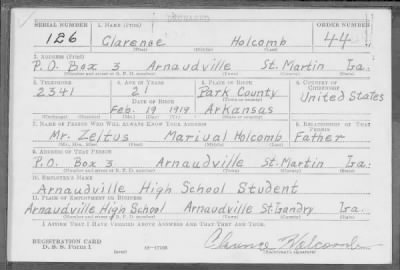 SERIAL NUMBER 1. NAME (Print) ORDER NUMBER
126 Clarence Holcomb 44
(First) (Middle) (Last)
2. ADDRESS (Print)
P.O. Box 3 Arnaudville St. Martin La.
(Number and street or R. F. D. number) (Town) (County) (State)
3. TELEPHONE 4. AGE IN YEARS 5. PLACE OF BIRTH 6. COUNTRY OF CITIZENSHIP
2341 21 Park County United States
DATE OF BIRTH (Town or county)
Feb. 19 1919 Arkansas
(Exchange) (Number) (Mo.) (Day) (Yr.) (State or country)
7. NAME OF PERSON WHO WILL ALWAYS KNOW YOUR ADDRESS 8. RELATIONSHIP OF THAT PERSON
Mr. Zeltus Marival Holcomb Father
(Mr., Mrs., Miss) (First) (Middle) (Last)
9. ADDRESS OF THAT PERSON
P.O. Box 3 Arnaudville St. Martin La.
(Number and street or R. F. D. number) (Town) (County) (State)
10. EMPLOYER'S NAME
Arnaudville High School Student
11. PLACE OF EMPLOYMENT OR BUSINESS
Arnaudville High School Arnaudville St. Landry La.
(Number and street or R. F. D. number) (Town) (County) (State)
I AFFIRM THAT I HAVE VERIFIED ABOVE ANSWERS AND THAT THEY ARE TRUE.
REGISTRATION CARD
D. S. S. Form 1 (over) 16—17105 Clarence Holcomb